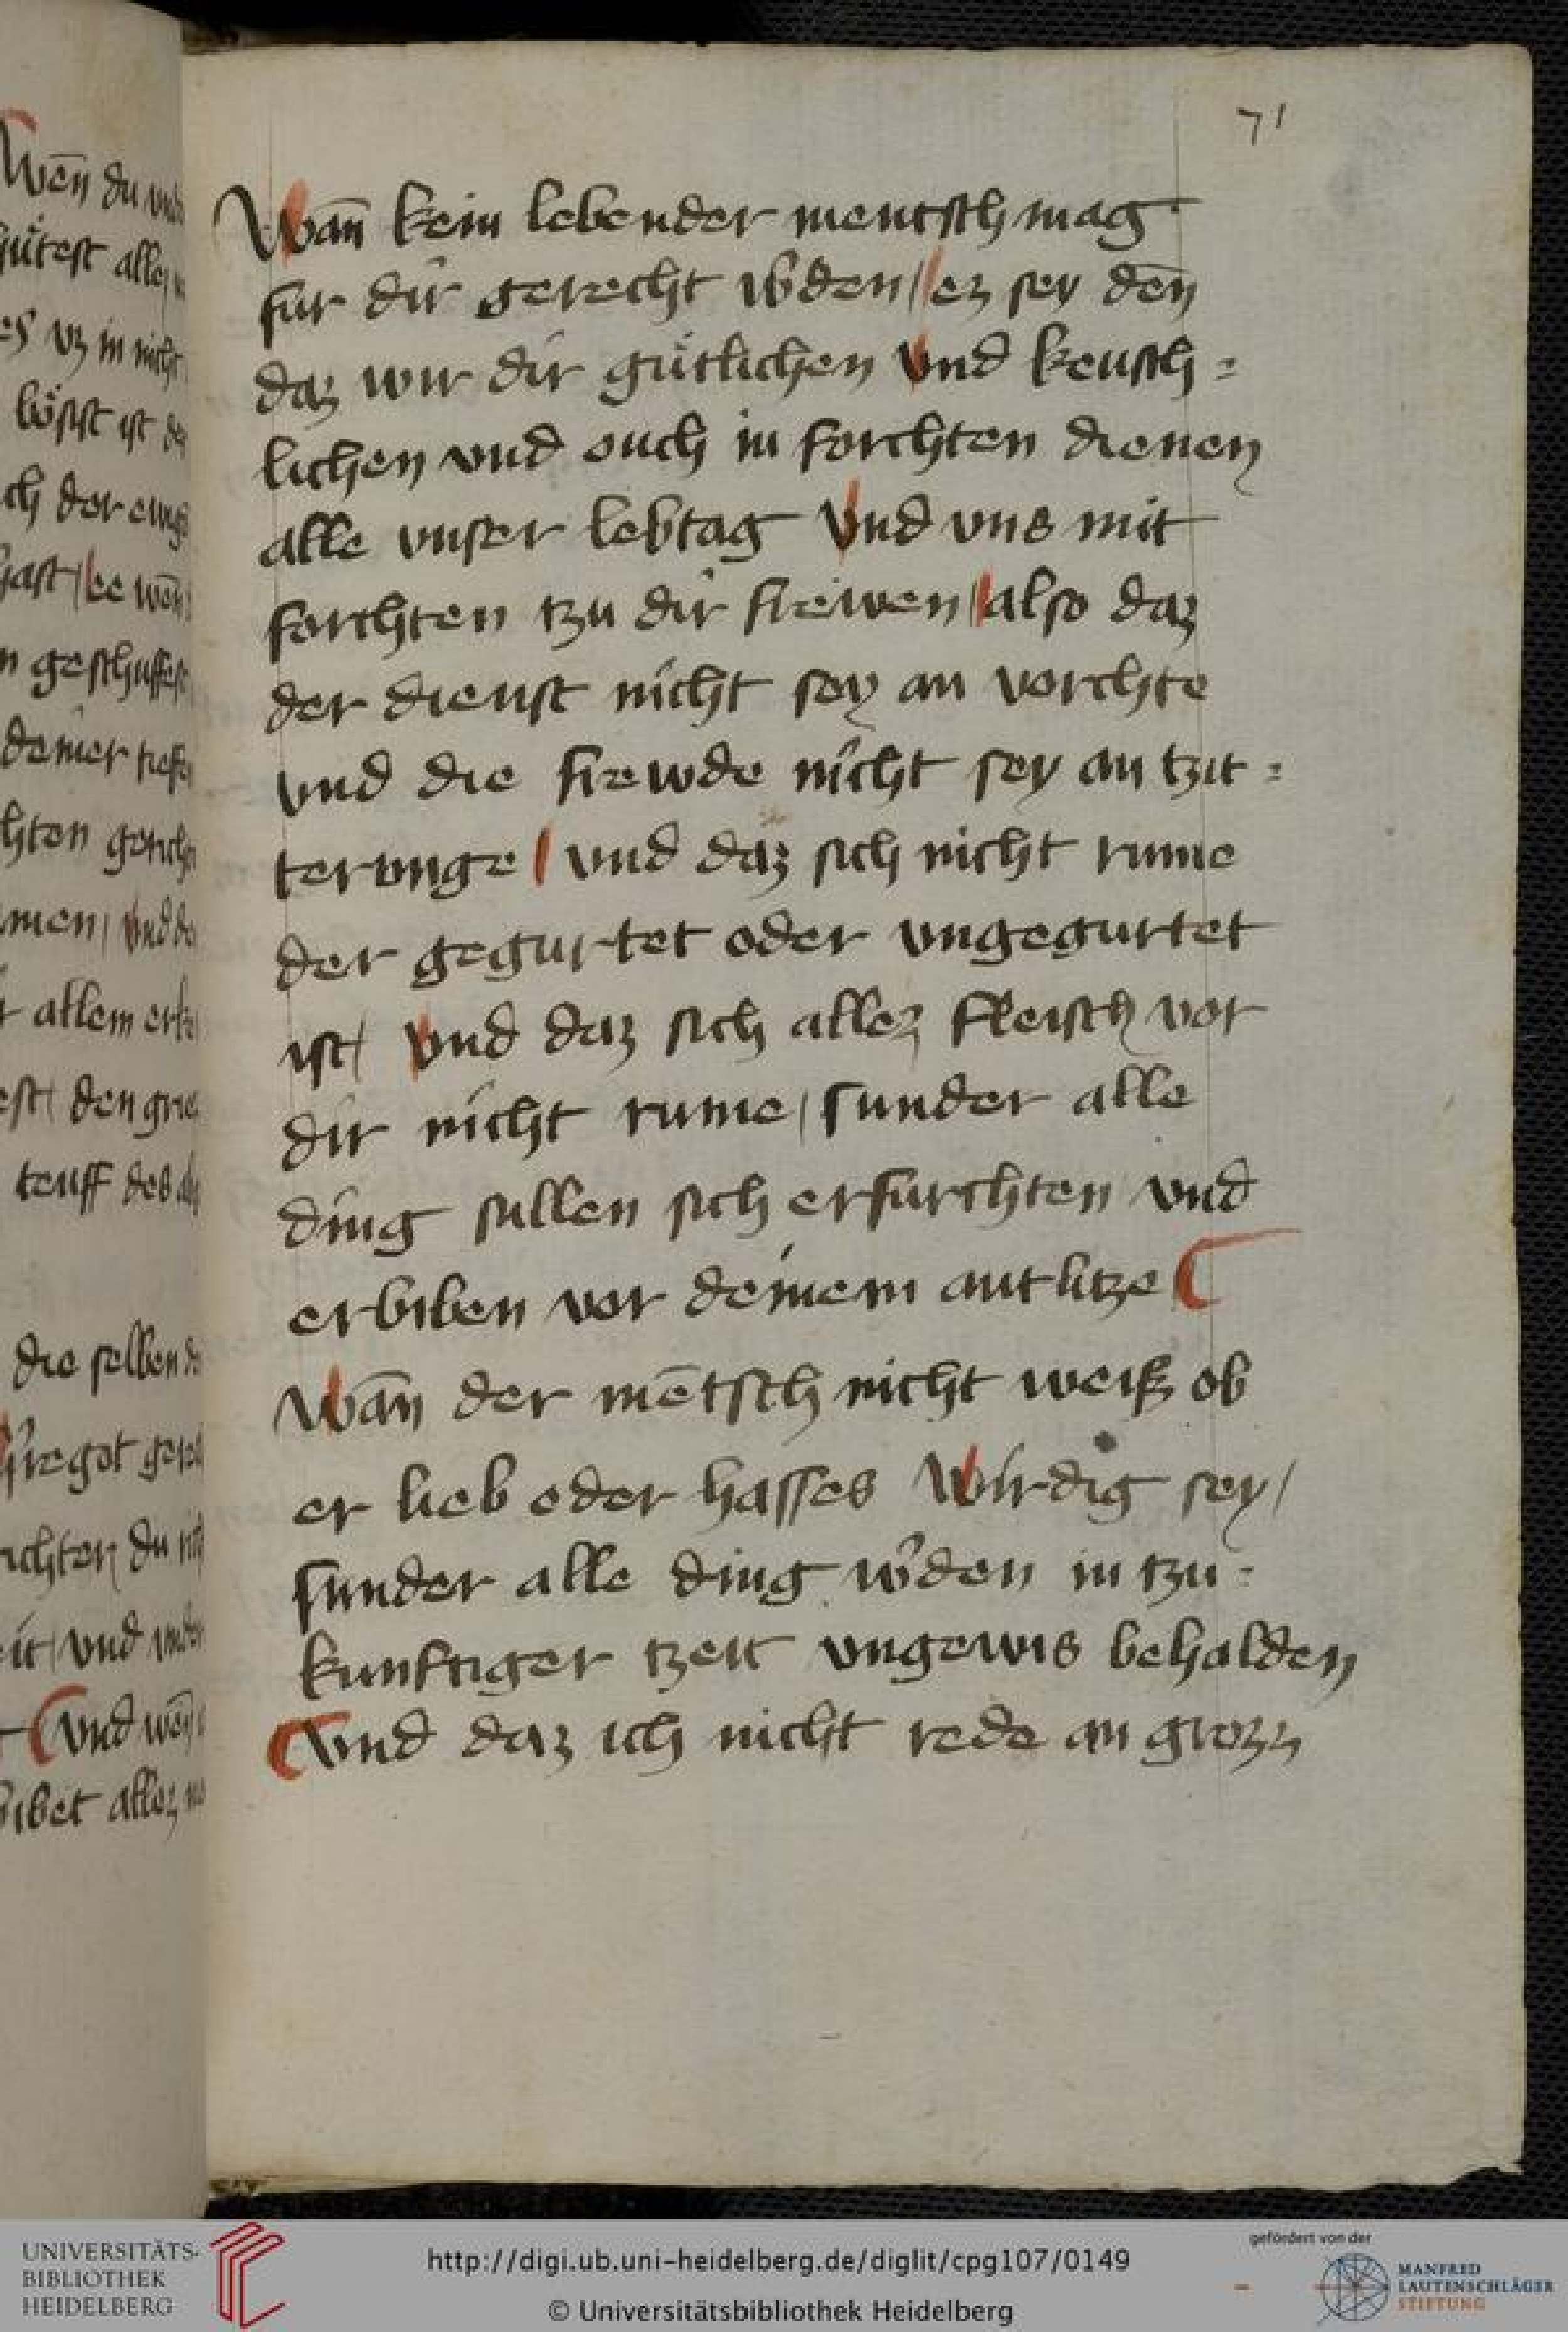 71
Wan̄ kein lebender mentsch mag
fur dir gerecht w̉den / ez sey den̄
daz wir dir gütlichen Vnd keusch=
lichen vnd ouch in forchten dienen
alle vnser lebtag Vnd vns mit
forchten tzu dir frewen / also daz
der dienst nicht sey an vorchte
vnd die frewde nicht sey an tzit=
terunge / vnd daz sich nicht rume
der gegurtet oder vngegurtet
ist / Vnd daz sich allez fleisch vor
dir nicht rume / sunder alle
ding sullen sich erfurchten vnd
erbiben vor deinem antlitze
Wan̄ der mētsch nicht weiß ob
er lieb oder hasses Wirdig sey /
sunder alle ding w̉den in tzu=
kunftiger tzeit vngewis behalden
Vnd daz ich nicht rede an grozz
Wen̄ du
allez
vz in nicht
böst ist
der
wen̄
geschuffest
deiner
men / Vnd
allem
den
teuff des
die selben
got
du
vnd
Vnd wen̄
allez
UNIVERSITÄTS-
BIBLIOTHEK
HEIDELBERG
http://digi.ub.uni-heidelberg.de/diglit/cpg107/0149
© Universitätsbibliothek Heidelberg
gefördert von der
MANFRED
LAUTENSCHLÄGER
STIFTUNG